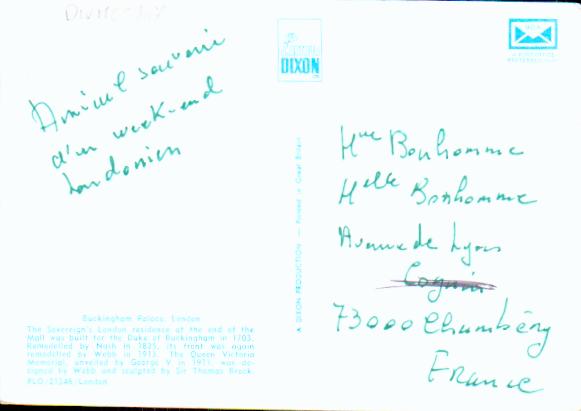 DIXON
Amical souvenir
d'un week-end
Londonien
Mme Bonhomme
Melle Bonhomme
Avenue de Lyon
73000 Chambéry
France
A DIXON PRODUCTION — Printed in Great Britain
Buckingham Palace, London
The Sovereign's London residence at the end of the
Mall was built for the Duke of Buckingham in 1703.
Remodelled by Nash in 1825, its front was again
remodelled by Webb in 1913. The Queen Victoria
Memorial, unveiled by George V in 1911, was de-
signed by Webb and sculpted by Sir Thomas Brock.
PLO/21246/London